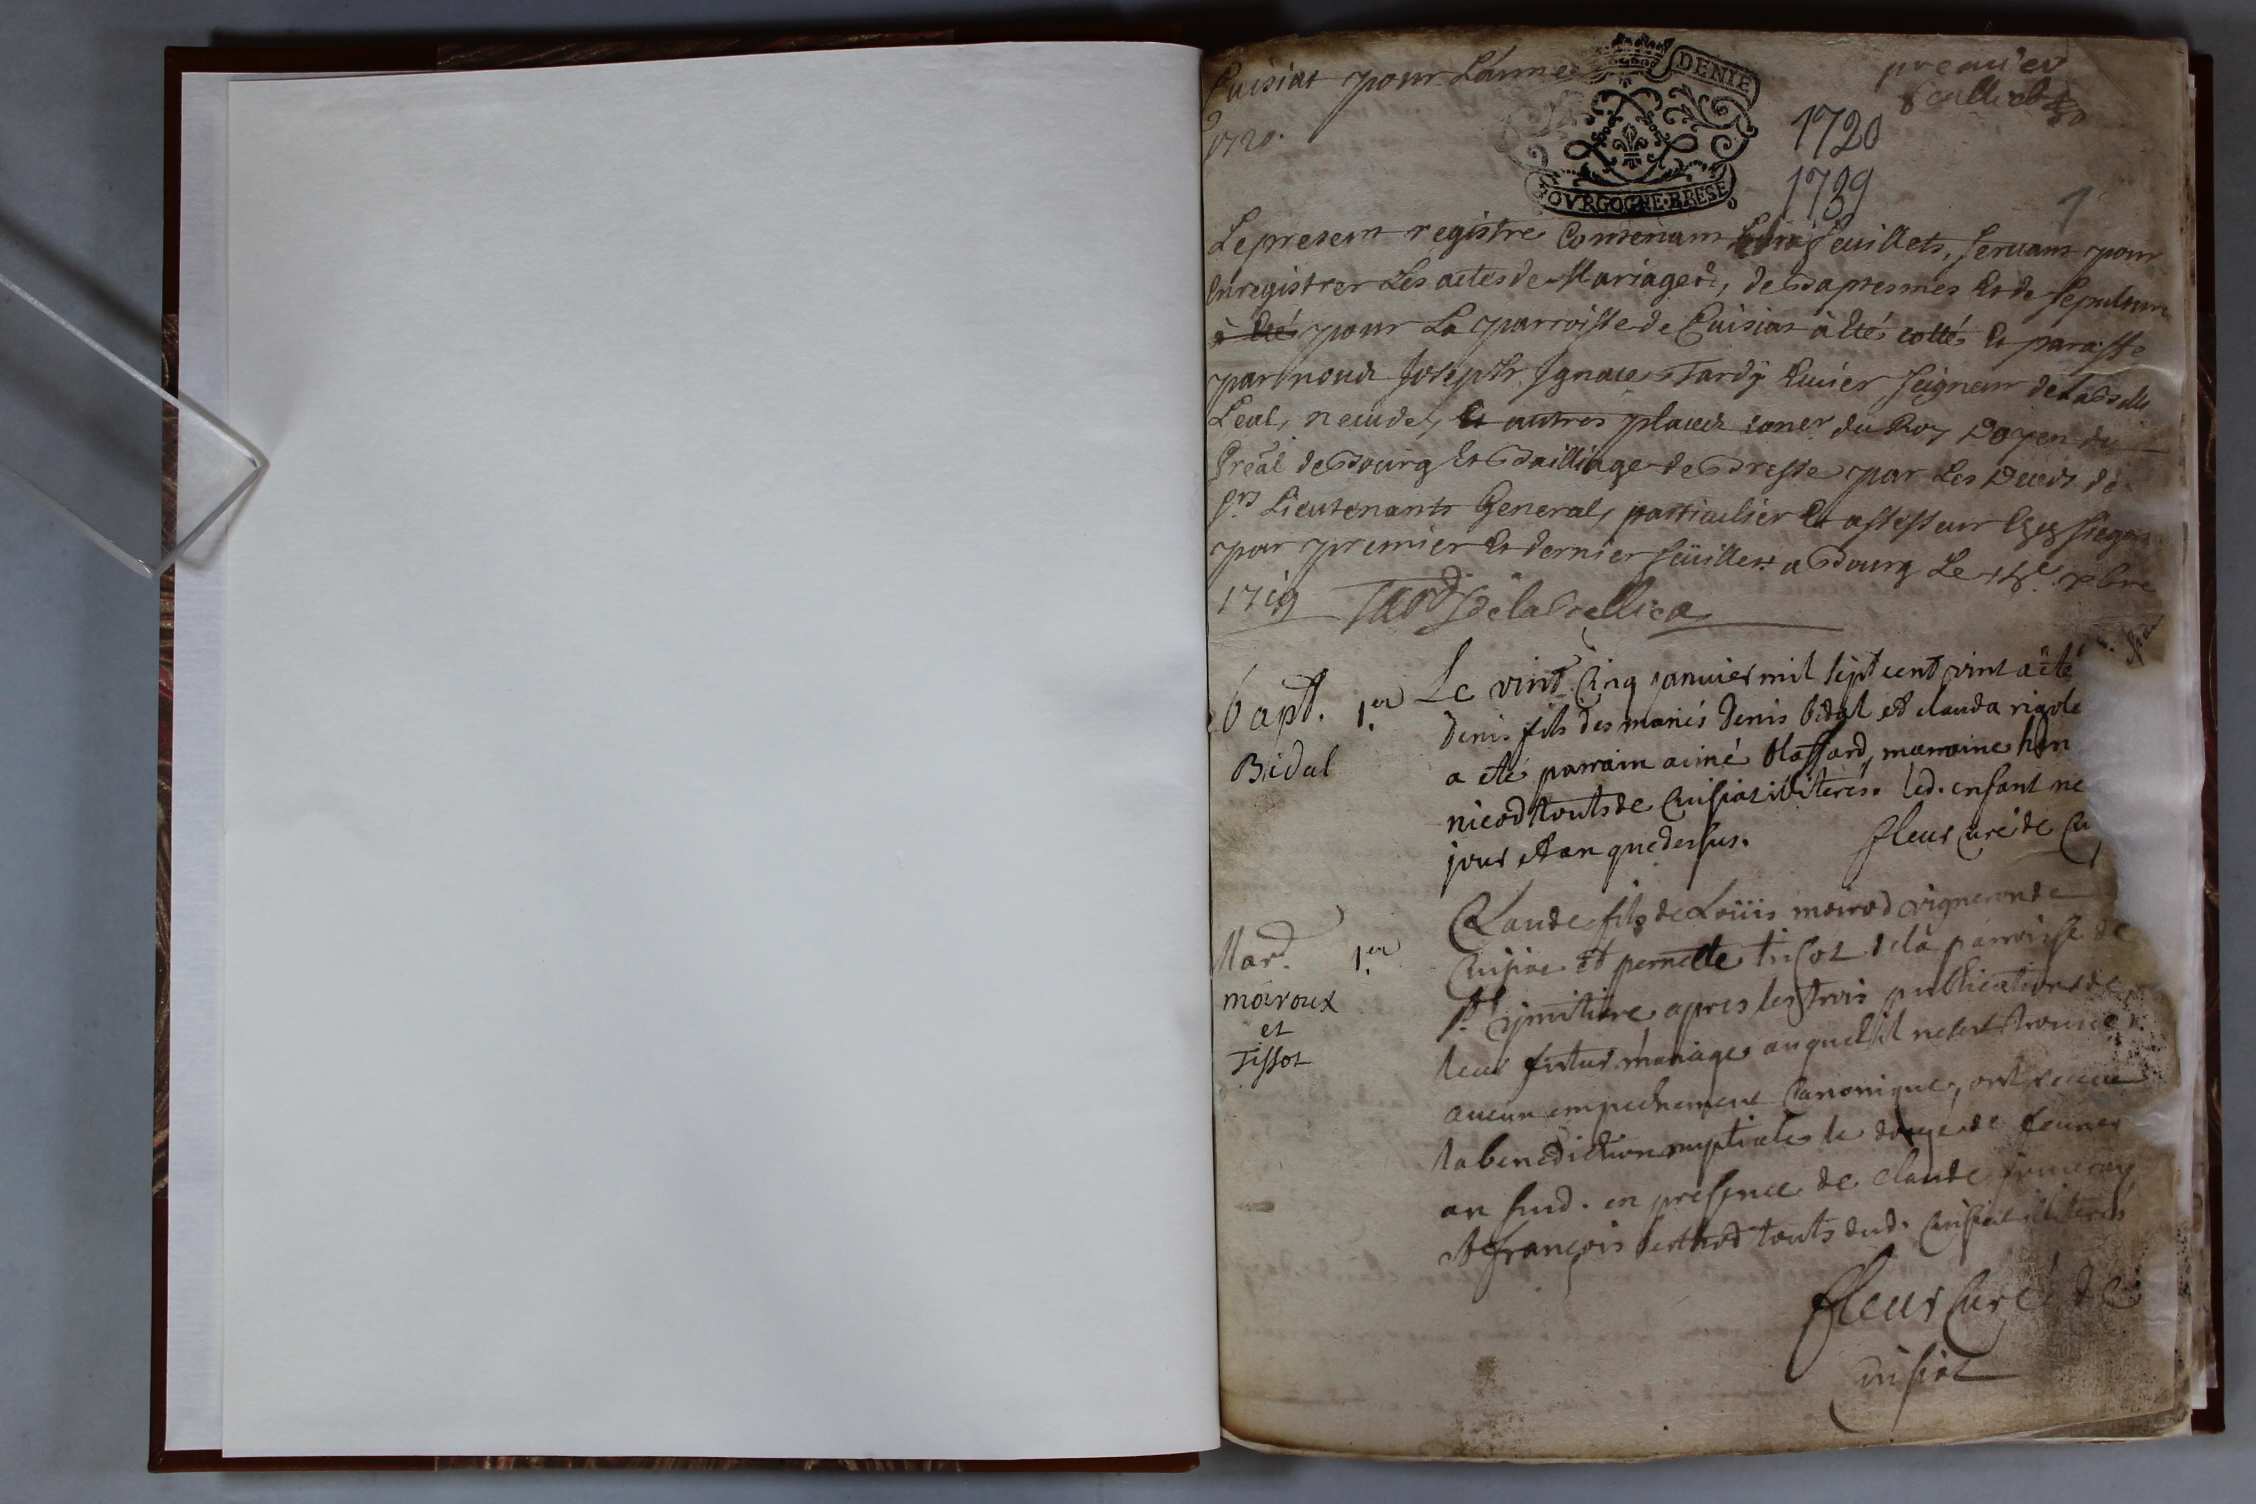 Cuisiat pour L'année
1720.
DENIE
BOVRGOGNE·BRESE
premier
feuillet
1720
1739
1
Le present registre Contenant feuillets, servant pour
Enregistrer Les actes de Mariages, de Baptesmes Et de sepulture
à Eté pour La parroisse de Cuisiat à Eté cotté Et paraffé
par nous Joseph Ignace Tardÿ Ecuier seigneur de La
Leal, neudel, Et autres places coner du Roy Doyen du
Preal de Bourg Et Bailliage de Bresse par Les Deces de
srs Lieutenants General, particulier Et assesseur Esqs sieges
par premier Et dernier feüillet a Bourg Le xbre
1719 Tardy
bapt. 1.er Le vint Cinq janvier mil sept cent vint a été
Bidal
denis fils des mariés denis bidal et clauda rigole
a eté parrain aimé blassard, marraine
nicod touts de Cuisiat illiterés. led. enfant né
jour et an que dessus. fleur curé de Cu
Mar. 1.er
moiroux
et
Tissot
Claude fils de Loüis moirod vigneron de
Cuisiat et pernette tissot de la parroisse de
St. Cymitiere apres les trois publications de
leur futur mariage auquel il ne s'est trouvé
aucun empechement Canonique, ont receu
la benediction nuptiale le de fevrier
an susd. en presence de claude
et françois berthod touts dud. Cuisiat illiterés
fleur Curé de
Cuisiat